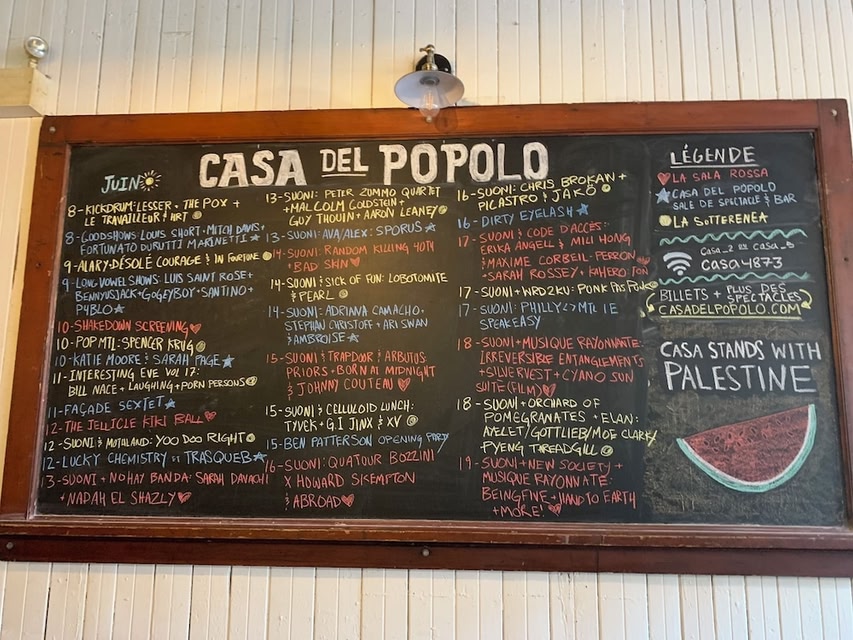 JUIN
CASA DEL POPOLO
8-KICKDRUM: LESSER + THE POX +
LE TRAVAILLEUR & ART
8-GOODSHOWS: LOUIS SHORT + MITCH DAVIS +
FORTUNATO DURUTTI MARINETTI
9-ALARY-DÉSOLÉ COURAGE & IN FORTUNE
9-LONG VOWEL SHOWS: LUIS SAINT ROSE +
BENNYUSJACK + GOGEYBOY + SANTINO +
P4BLO
10-SHAKEDOWN SCREENING
10-POP MTL: SPENCER KRUG
10-KATIE MOORE & SARAH PAGE
11-INTERESTING EVE VOL 17:
BILL NACE + LAUGHING + PORN PERSONS
11-FAÇADE SEXTET
12-THE JELLICLE KIKI BALL
12-SUONI & MOTALAND: YOO DOO RIGHT
12-LUCKY CHEMISTRY + TRASQUEB
13-SUONI + NO HAY BANDA: SARAH DAVACHI
+ NADAH EL SHAZLY
13-SUONI: PETER ZUMMO QUARTET
+ MALCOLM GOLDSTEIN +
GUY THOUIN + AARON LEANEY
13-SUONI: AVA/ALEX: SPORUS
14-SUONI: RANDOM KILLING 40TH
+ BAD SKIN
14-SUONI & SICK OF FUN: LOBOTOMITE
& PEARL
14-SUONI: ADRIANA CAMACHO,
STEPHAN CHRISTOFF + ARI SWAN
& AMBROISE
15-SUONI & TRAPDOOR & ARBUTUS:
PRIORS + BORN AT MIDNIGHT
& JOHNNY COUTEAU
15-SUONI & CELLULOID LUNCH:
TYVEK + G.I JINX & XV
15-BEN PATTERSON OPENING PARTY
16-SUONI: QUATUOR BOZZINI
X HOWARD SKEMPTON
& ABROAD
16-SUONI: CHRIS BROKAN +
PICASTRO & JAKO
16-DIRTY EYELASH
17-SUONI & CODE D'ACCÈS:
ERIKA ANGELL & MILI HONG
& MAXIME CORBEIL-PERRON
+ SARAH ROSSEY + KAHERO:TON
17-SUONI + WRD2KU: PONK
17-SUONI: PHILLY<>MTL IE
SPEAKEASY
18-SUONI + MUSIQUE RAYONNANTE:
IRREVERSIBLE ENTANGLEMENTS
+ SILVERVEST + CYANO SUN
SUITE (FILM)
18-SUONI + ORCHARD OF
POMEGRANATES + ELAN:
AYELET/GOTTLIEB/MOE CLARK/
PYENG THREADGILL
19-SUONI + NEW SOCIETY +
MUSIQUE RAYONNATE:
BEINGFIVE + HAND TO EARTH
+ MORE!
LÉGENDE
LA SALA ROSSA
CASA DEL POPOLO
SALE DE SPECTACLE & BAR
LA SOTTERENEA
CASA_2 or CASA_5
CASA4873
BILLETS + PLUS DES
SPECTACLES
CASADELPOPOLO.COM
CASA STANDS WITH
PALESTINE